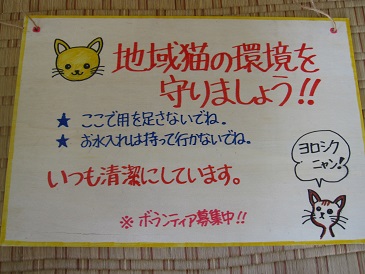 地域猫の環境を
守りましょう!!
★ ここで用を足さないでね。
★ お水入れは持って行かないでね。
いつも清潔にしています。
ヨロシク
ニャン!
※ ボランティア募集中!!